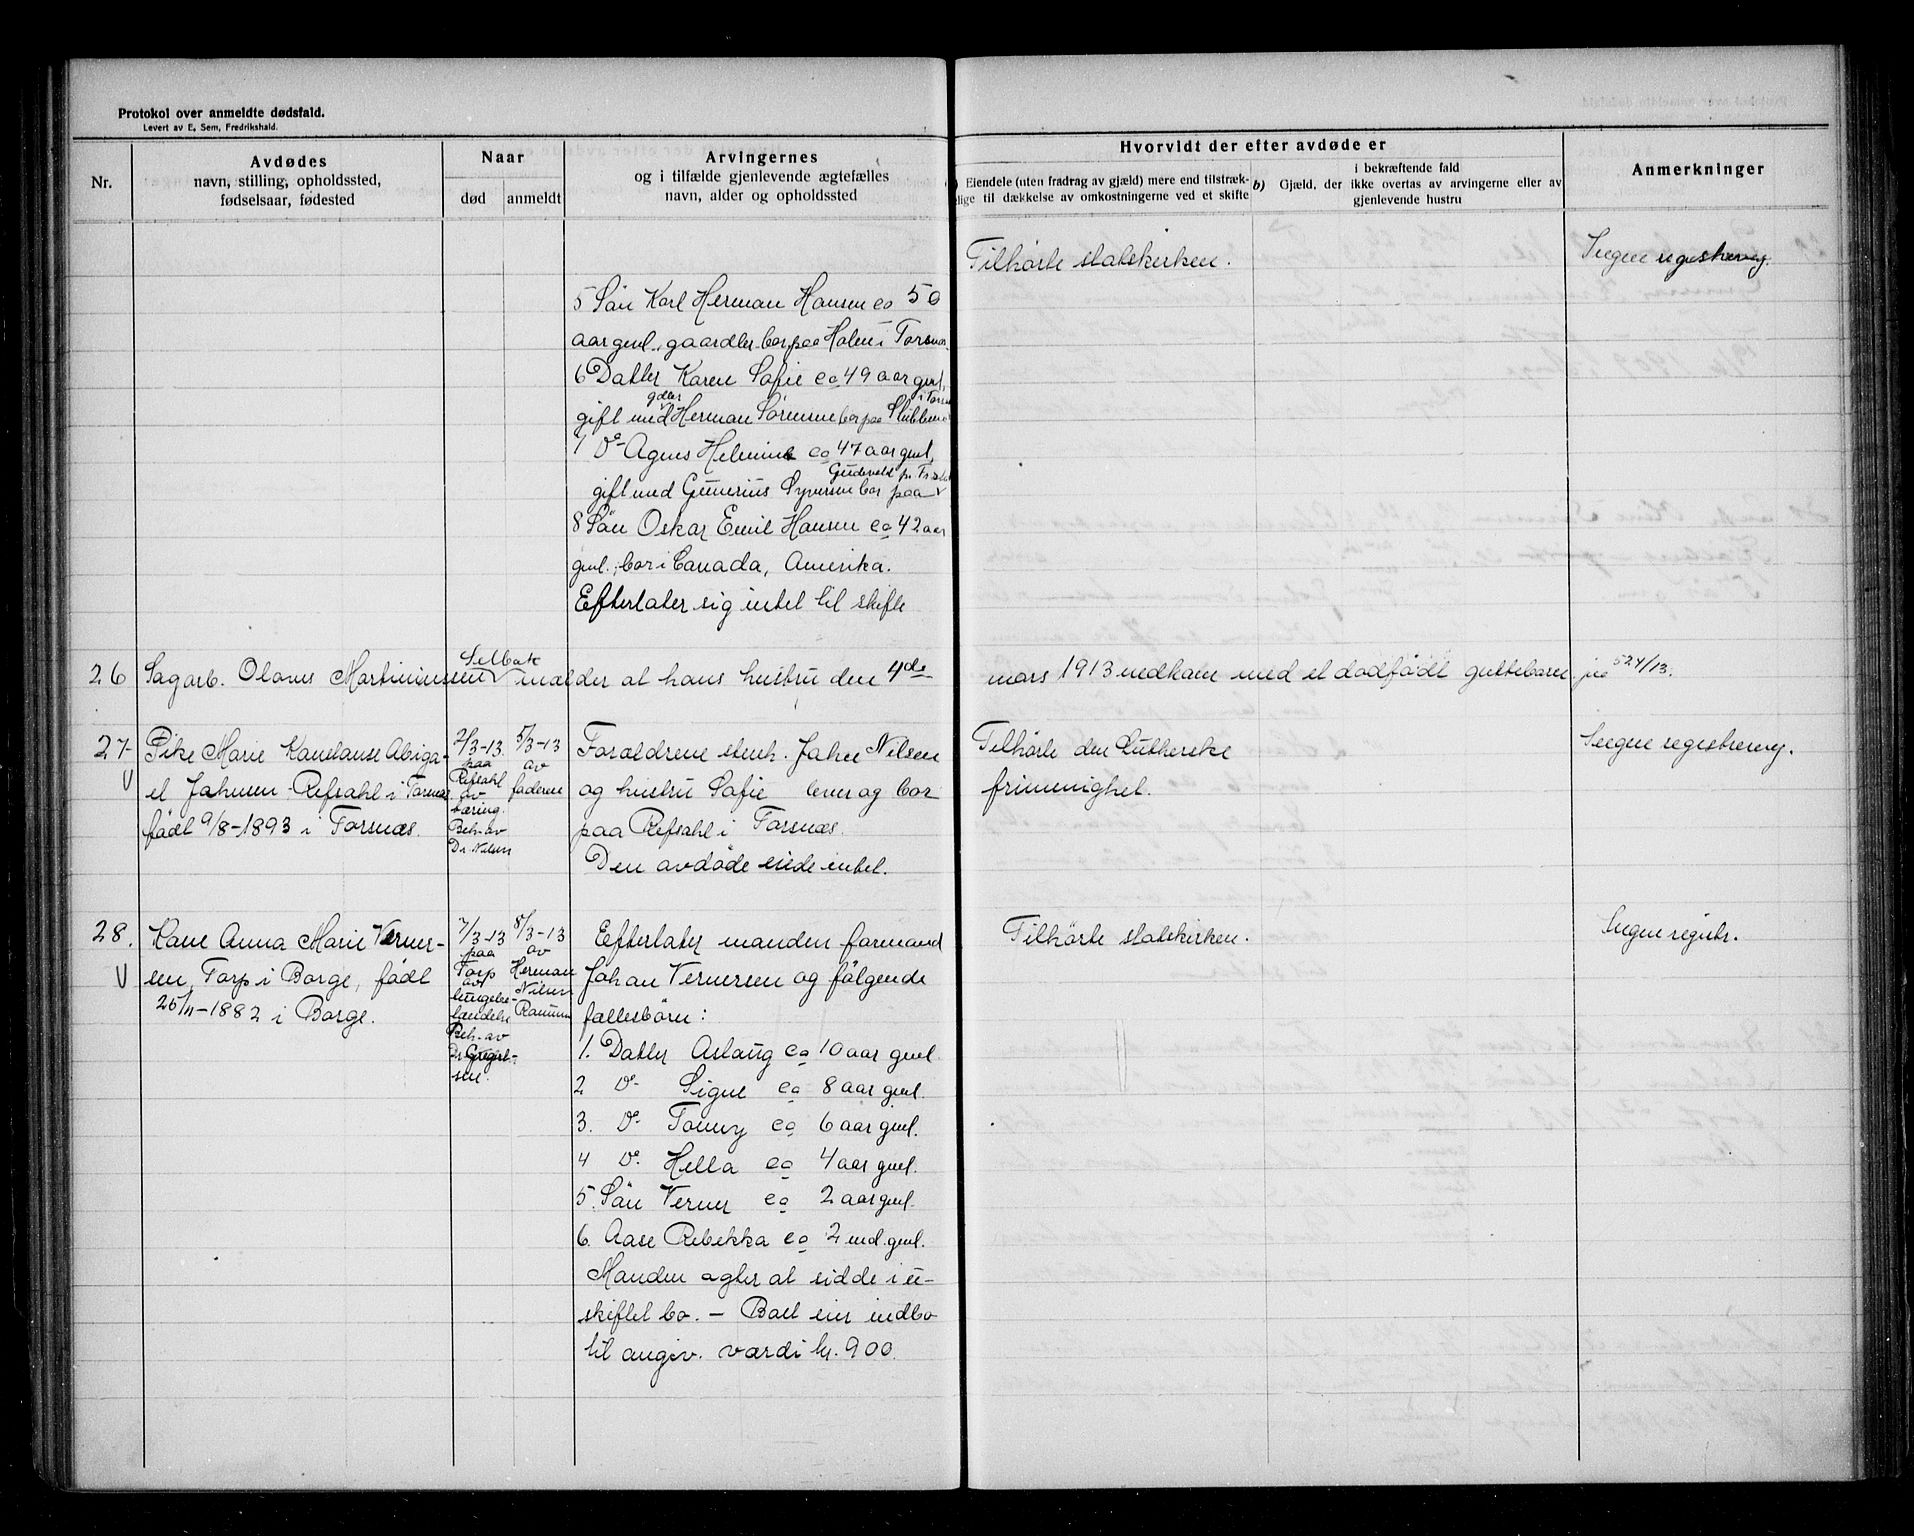 Protokol over anmeldte dødsfald.
Levert av E. Sem, Fredrikshald.
Nr.
Avdødes
navn, stilling, opholdssted,
fødselsaar, fødested
Naar
død
anmeldt
Arvingernes
og i tilfælde gjenlevende ægtefælles
navn, alder og opholdssted
Hvorvidt der efter avdøde er
Eiendele (uten fradrag av gjæld) mere end tilstræk-
elige til dækkelse av omkostningerne ved et skifte
b)
i bekræftende fald
Gjæld, der ikke overtas av arvingerne eller av
gjenlevende hustru
Anmerkninger
Tilhørte statskirken.
Ingen registrering.
5 Søn Karl Herman Hansen ca 50
aar gml. gaardbr. bor paa Holen i Torsnæs
6 Datter Karen Sofie ca 49 aar gml,
gdbr i Torsn
gift med Herman Sörensen bor paa
7 do Agnes Helmine ca 47 aar gml,
gift med Gunerius Syversen bor paa
8 Søn Oskar Emil Hansen ca 42 aar
gml., bor i Canada, Amerika.
Efterlater sig intet til skifte
26 Sagarb. Olaves Martiniussen Selbak melder at hans hustru den 4de
mars 1913 nedkom med et dødfødt guttebarn. jnr 524/13.
27 Pike Marie Konstanse Abiga-
el Johnsen Refsahl i Torsnæs
født 9/8-1893 i Torsnæs.
2/3-13
paa
Refsahl
av
tæring.
Beh. av
Dr. Nilsen
5/3-13
av
faderen
Forældrene stenh. Johan Nilsen
og hustru Sofie lever og bor
paa Refsahl i Torsnæs.
Den avdøde eiede intet.
Tilhørte den Lutherske
frimenighet.
Ingen registrering.
28. Kone Anna Marie Verner-
sen, Torp i Borge, født
25/11-1882 i Borge.
7/3-13
paa
Torp
av
lungebe-
tændelse
Beh. av
Dr.
sen.
8/3-13
av
Herman
Nilsen
Efterlater manden formand
Johan Vernersen og følgende
fællesbörn:
1. Datter Aslaug ca 10 aar gml.
2 do Signe ca 8 aar gml.
3. do Tommy ca 6 aar gml.
4 do. Hella ca 4 aar gml.
5. Søn Verner ca 2 aar gml.
6. Aase Rebekka ca 2 md. gml.
Manden agter at sidde i u-
skiftet bo. – Boet eier indbo
til angiv. værdi kr. 900.
Tilhørte statskirken.
Ingen registr.